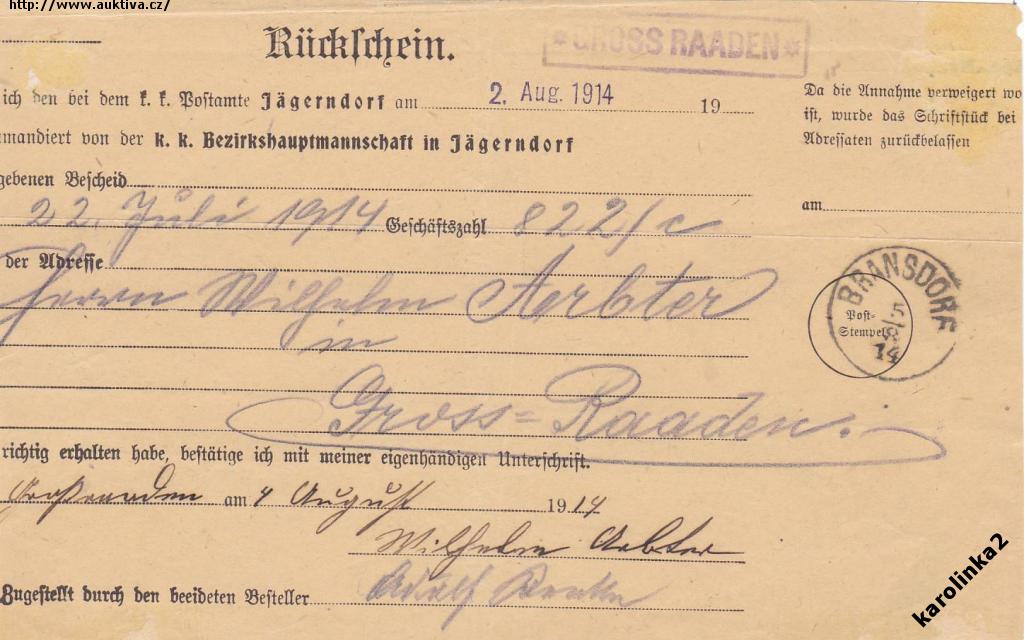 http://www.auktiva.cz/
Rückschein.
* GROSS RAADEN *
ich den bei dem k. k. Postamte Jägerndorf am 2. Aug. 1914 19
mmandiert von der k. k. Bezirkshauptmannschaft in Jägerndorf
gebenen Bescheid
22. Juli 1914 Geschäftszahl 822/c
der Adresse
Herrn Wilhelm Aerbter
in
Gross=Raaden.
richtig erhalten habe, bestätige ich mit meiner eigenhändigen Unterschrift.
Großraaden am 4 August 1914
Wilhelm Arbter
Zugestellt durch den beeideten Besteller Adolf
Da die Annahme verweigert wo
ist, wurde das Schriftstück bei
Adressaten zurückbelassen
am
BRANSDORF
Post-
Stempel
14
karolinka2